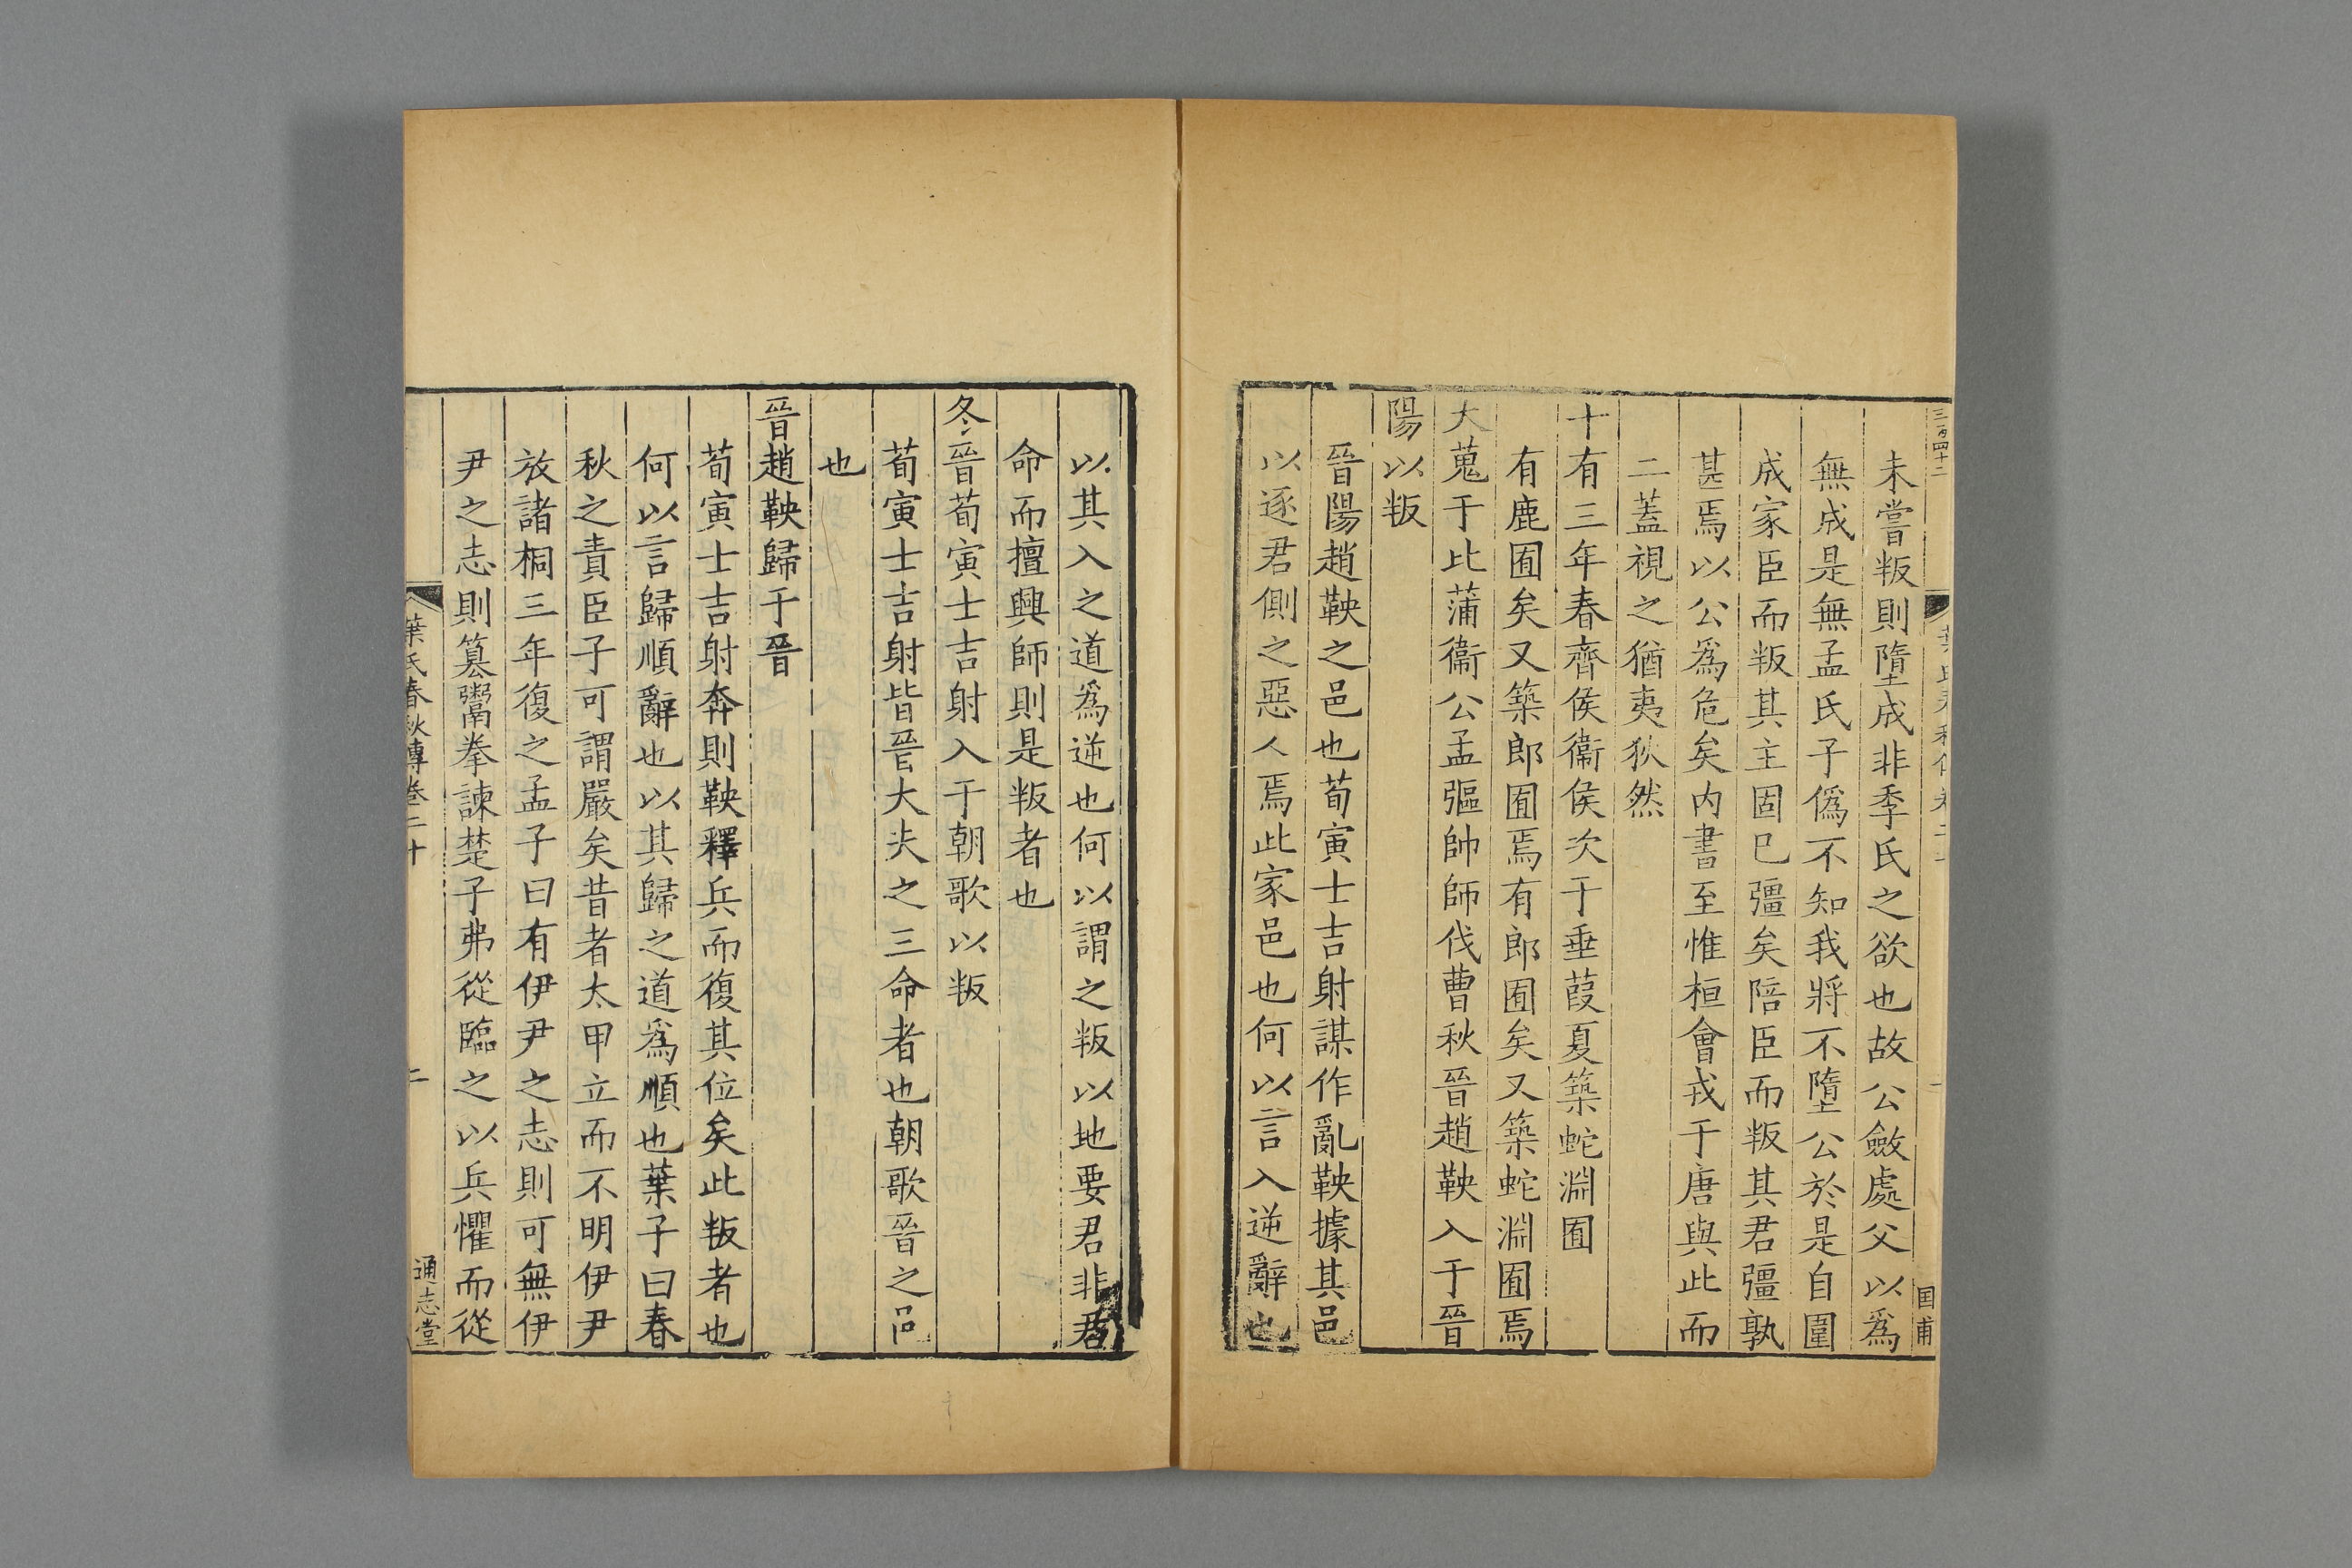 三百四十二
未嘗叛則墮成非季氏之欲也故公斂處父以爲
無成是無孟氏子僞不知我將不墮公於是自圍
成家臣而叛其主固已彊矣陪臣而叛其君彊孰
甚焉以公爲危矣内書至惟桓會戎于唐與此而
二蓋視之猶夷狄然
十有三年春齊侯衞侯次于垂葭夏築蛇淵囿
有鹿囿矣又築郎囿焉有郎囿矣又築蛇淵囿焉
大蒐于比蒲衞公孟彄帥師伐曹秋晉趙鞅入于晉
陽以叛
晉陽趙鞅之邑也荀寅士吉射謀作亂鞅據其邑
以逐君側之惡人焉此家邑也何以言入逆辭也
以其入之道爲逆也何以謂之叛以地要君非君
命而擅興師則是叛者也
冬晉荀寅士吉射入于朝歌以叛
荀寅士吉射皆晉大夫之三命者也朝歌晉之邑
也
晉趙鞅歸于晉
荀寅士吉射奔則鞅釋兵而復其位矣此叛者也
何以言歸順辭也以其歸之道爲順也葉子曰春
秋之責臣子可謂嚴矣昔者太甲立而不明伊尹
放諸桐三年復之孟子曰有伊尹之志則可無伊
尹之志則篡鬻拳諫楚子弗從臨之以兵懼而從
葉氏春秋傳卷二十
二
通志堂